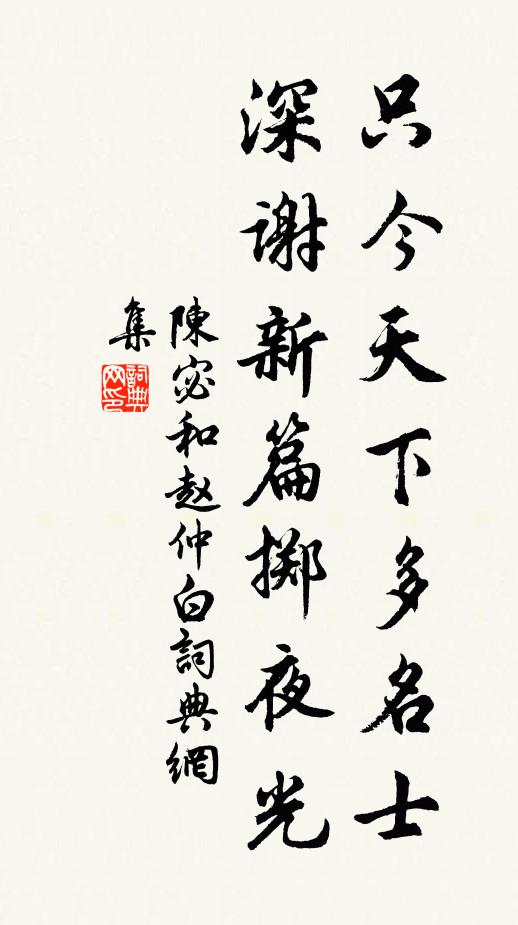 只今天下多名士
深谢新篇掷夜光
陳宓和赵仲白詞典網
集
詞典
网印